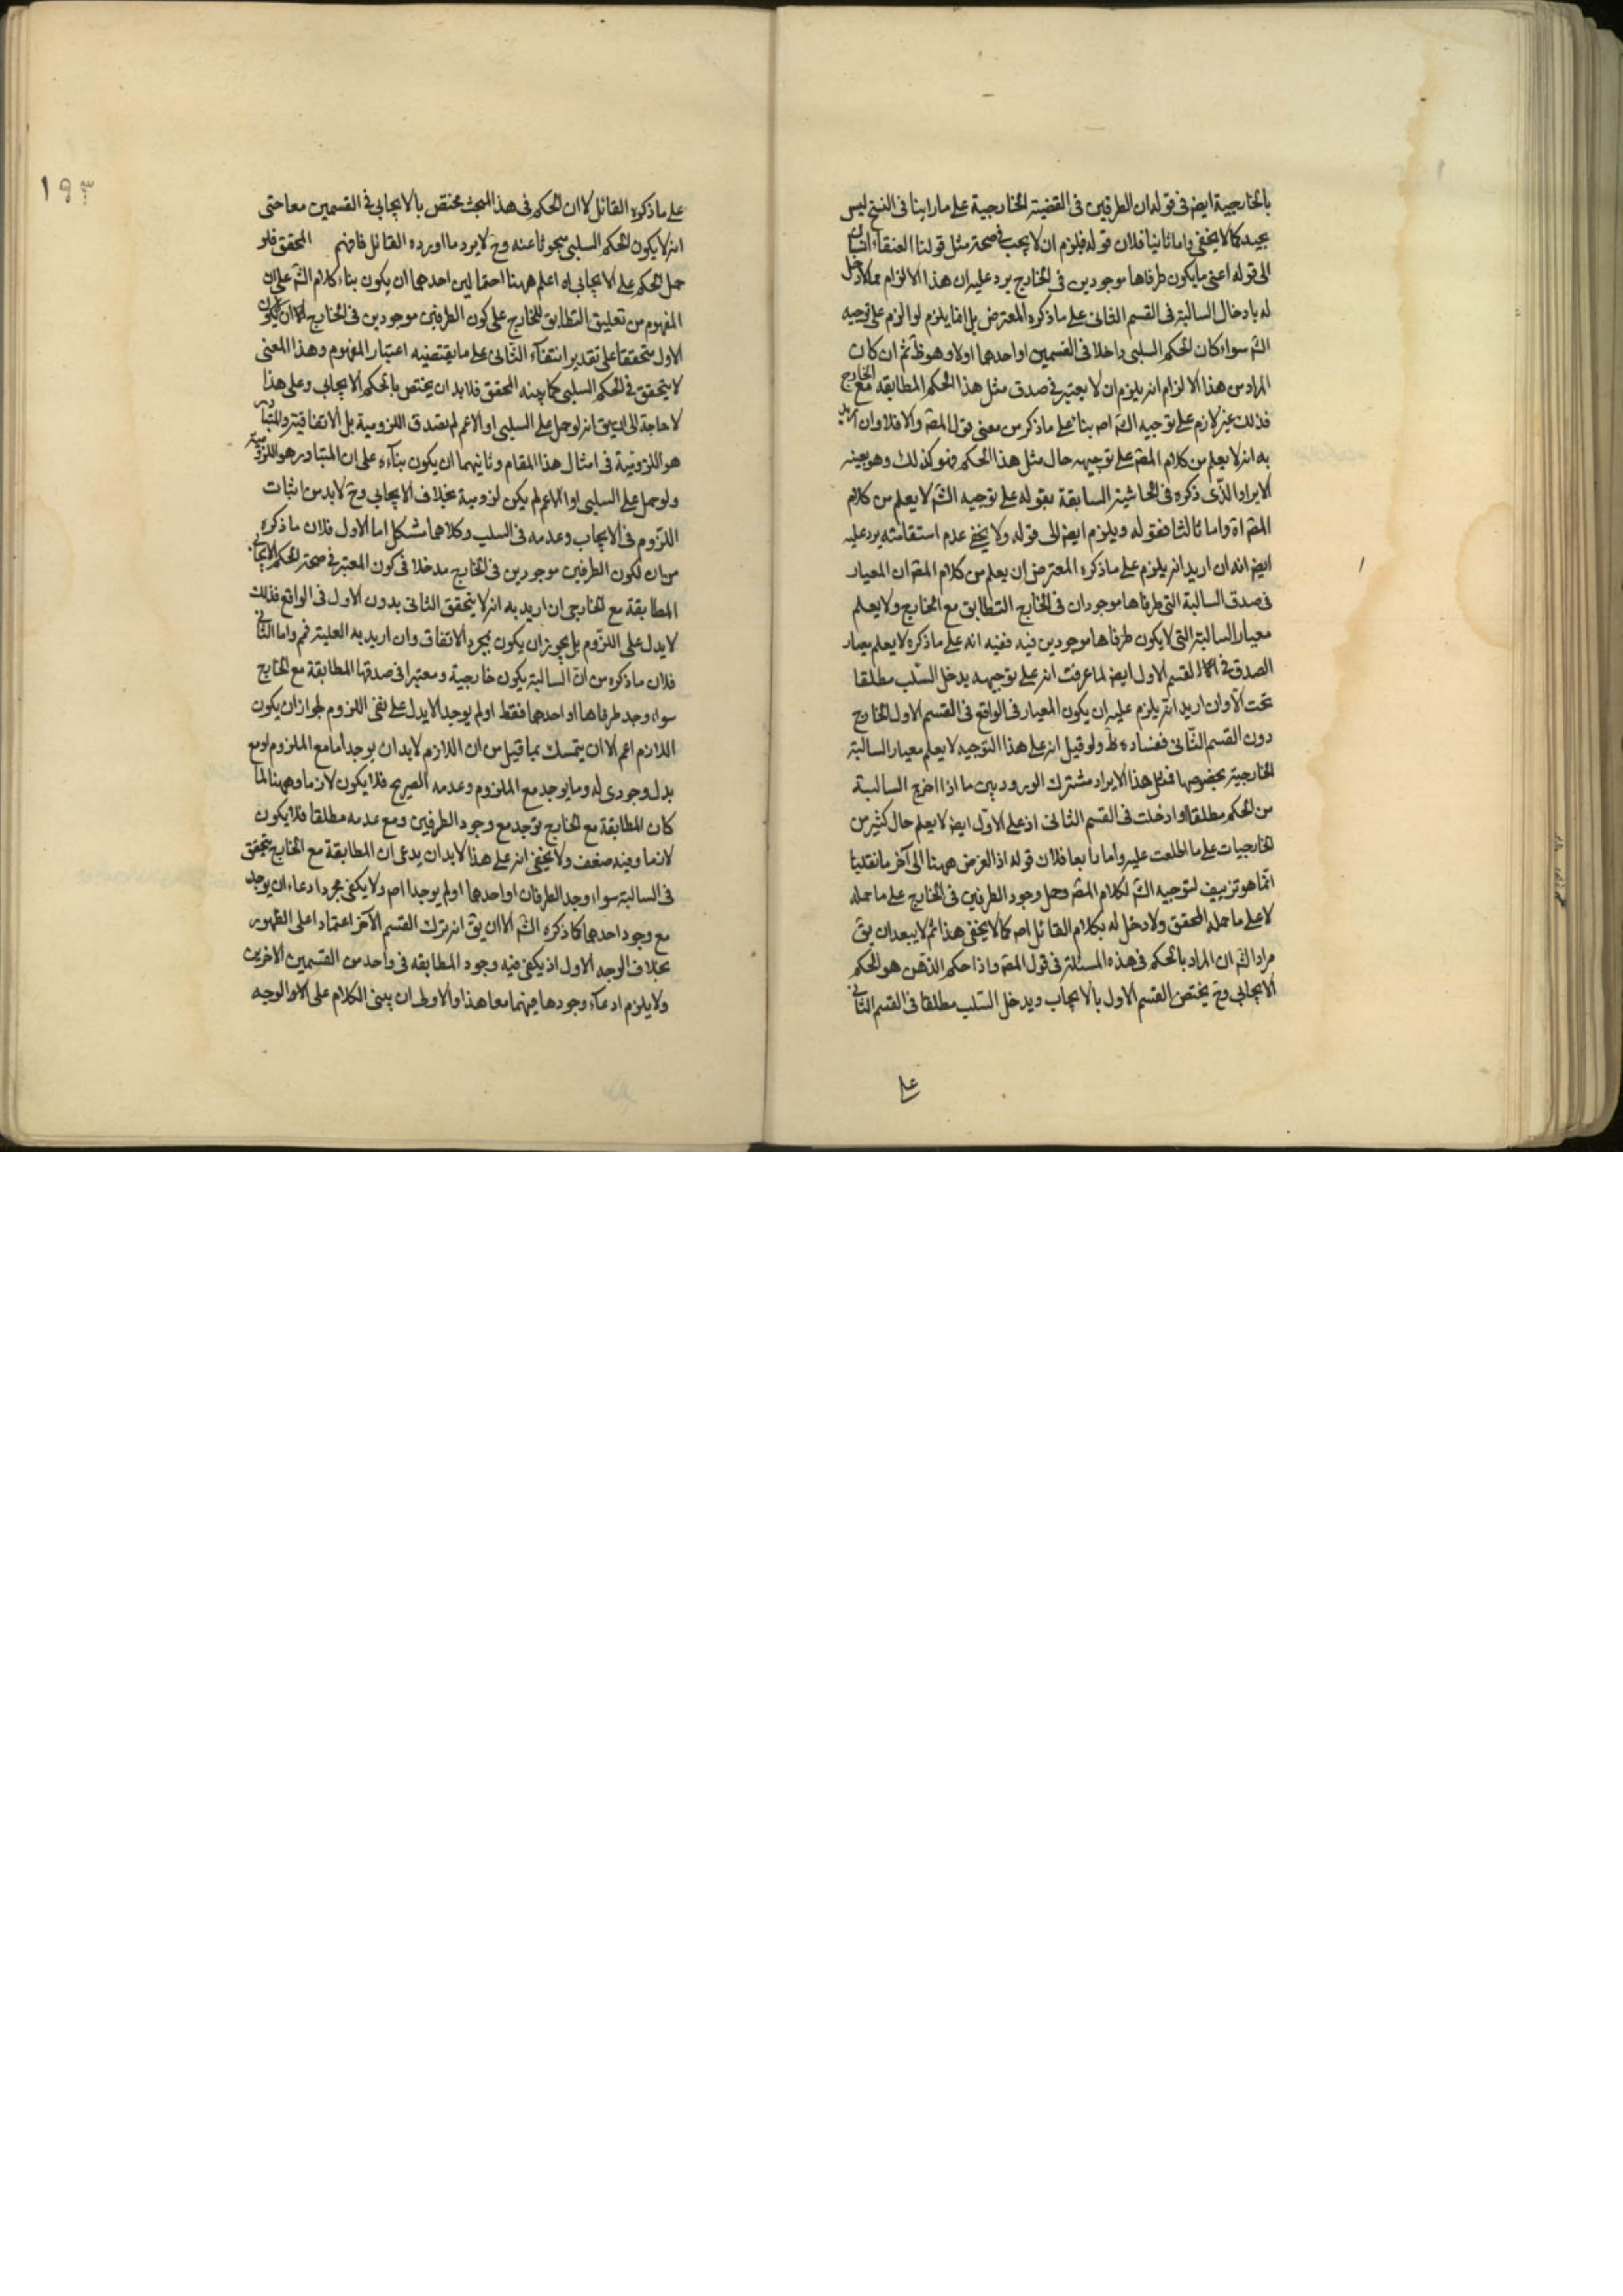 بالخارجية ايضا في قوله ان الطرفين في القضية الخارجية على ما راينا في النسخ ليس
بجيد كما لا يخفى واما ثانيا فلان قوله فيلزم ان لا يجب في صحة مثل قولنا العنقاء
الى قوله اعنى ما يكون طرفاها موجودين في الخارج يرد عليه ان هذا الالزام مما لا دخل
له بادخال السالبة في القسم الثانى على ما ذكره المعترض بل انما يلزم لو الزم على توجيه
الش سواء كان الحكم السلبى داخلا في القسمين او احدهما اولا وهو ظ ثم ان كان
المراد من هذا الالزام انه يلزم ان لا يعتبر في صدق مثل هذا الحكم المطابقة مع الخارج
فذلك غير لازم على توجيه الش اصلا بناء على ما ذكر من معنى قول المص والا فلا وان اريد
به انه لا يعلم من كلام المص على توجيهه حال مثل هذا الحكم فهو كذلك وهو بعينه
الايراد الذى ذكره في الحاشية السابقة بقوله على توجيه الش لا يعلم من كلام
المص اه واما ثالثا فقوله ويلزم ايضا الى قوله ولا يخفى عدم استقامته يرد عليه
ايضا انه ان اريد انه يلزم على ما ذكره المعترض ان يعلم من كلام المص ان المعيار
في صدق السالبة التى طرفاها موجودان في الخارج التطابق مع الخارج ولا يعلم
معيار السالبة التى لا يكون طرفاها موجودين فيه ففيه انه على ما ذكره لا يعلم معيار
الصدق في القسم الاول ايضا لما عرفت انه على توجيهه يدخل السلب مطلقا
تحت الا وان اريد انه يلزم عليه ان يكون المعيار في الواقع في القسم الاول الخارج
دون القسم الثانى ففساده ظ ولو قيل انه على هذا التوجيه لا يعلم معيار السالبة
الخارجية بخصوصها فمثل هذا الايراد مشترك الورود بين ما اذا اخرج السالبة
من الحكم مطلقا او ادخلت في القسم الثانى اذ على الاول ايضا لا يعلم حال كثير من
الخارجيات على ما اطلعت عليه واما رابعا فلان قوله اذ الغرض ههنا الى آخر ما نقلنا
انما هو تزييف لتوجيه الش لكلام المص وحمل وجود الطرفين في الخارج على ما حمله
لا على ما حمله المحقق ولا دخل له بكلام القائل اصلا كما لا يخفى هذا ثم لا يبعد ان يق
مراد الش ان المراد بالحكم في هذه المسئلة في قول المص واذا حكم الذهن هو الحكم
الايجابى وح يختص القسم الاول بالايجاب ويدخل السلب مطلقا في القسم الثانى
على
١٩٣
على ما ذكره القائل لا ان الحكم في هذا المبحث مختص بالايجابى في القسمين معا حتى
انه لا يكون الحكم السلبى مبحوثا عنه وح لا يرد ما اورده القائل فافهم المحقق فلو
حمل الحكم على الايجابى اه اعلم ههنا احتمالين احدهما ان يكون بناء كلام الش على ان
المفهوم من تعليق التطابق للخارج على كون الطرفين موجودين في الخارج ان لا يكون
الاول متحققا على تقدير انتفاء الثانى على ما يقتضيه اعتبار المفهوم وهذا المعنى
لا يتحقق في الحكم السلبى كما بينه المحقق فلا بد ان يختص بالحكم الايجابى وعلى هذا
لا حاجة الى ان يق انه لو حمل على السلبى او الاعم لم يصدق اللزومية بل الاتفاقية والمتبادر
هو اللزومية في امثال هذا المقام وثانيهما ان يكون بناءه على ان المتبادر هو اللزومية
ولو حمل على السلبى او الاعم لم يكن لزومية بخلاف الايجابى وح لا بد من اثبات
اللزوم في الايجاب وعدمه في السلب وكلاهما مشكل اما الاول فلان ما ذكره
من ان لكون الطرفين موجودين في الخارج مدخلا في كون المعتبر في صحة الحكم الايجابى
المطابقة مع الخارجى ان اريد به انه لا يتحقق الثانى بدون الاول في الواقع فذلك
لا يدل على اللزوم بل يجوز ان يكون بمجرد الاتفاق وان اريد به العلية فمم واما الثانى
فلان ما ذكره من ان السالبة يكون خارجية ومعتبرا في صدقها المطابقة مع الخارج
سواء وجد طرفاها او احدهما فقط او لم يوجد الا يدل على نفى اللزوم لجواز ان يكون
اللازم اعم الا ان يتمسك بما قيل من ان اللازم لا بد ان يوجد اما مع الملزوم او مع
بدل وجودى له وما يوجد مع الملزوم وعدمه الصريح فلا يكون لازما وههنا لما
كان المطابقة مع الخارج توجد مع وجود الطرفين ومع عدمه مطلقا فلا يكون
لازما وفيه ضعف ولا يخفى انه على هذا لا بد ان يدعى ان المطابقة مع الخارج يتحقق
في السالبة سواء وجد الطرفان او احدهما او لم يوجد اصلا ولا يكفى مجرد ادعاء ان يوجد
مع وجود احدهما كما ذكره الش الا ان يق انه ترك القسم الآخر اعتمادا على الظهور
بخلاف الوجه الاول اذ يكفى فيه وجود المطابقه في واحد من القسمين الاخرين
ولا يلزم ادعاء وجودها فيهما معا هذا والاولى ان يبنى الكلام على الوجه